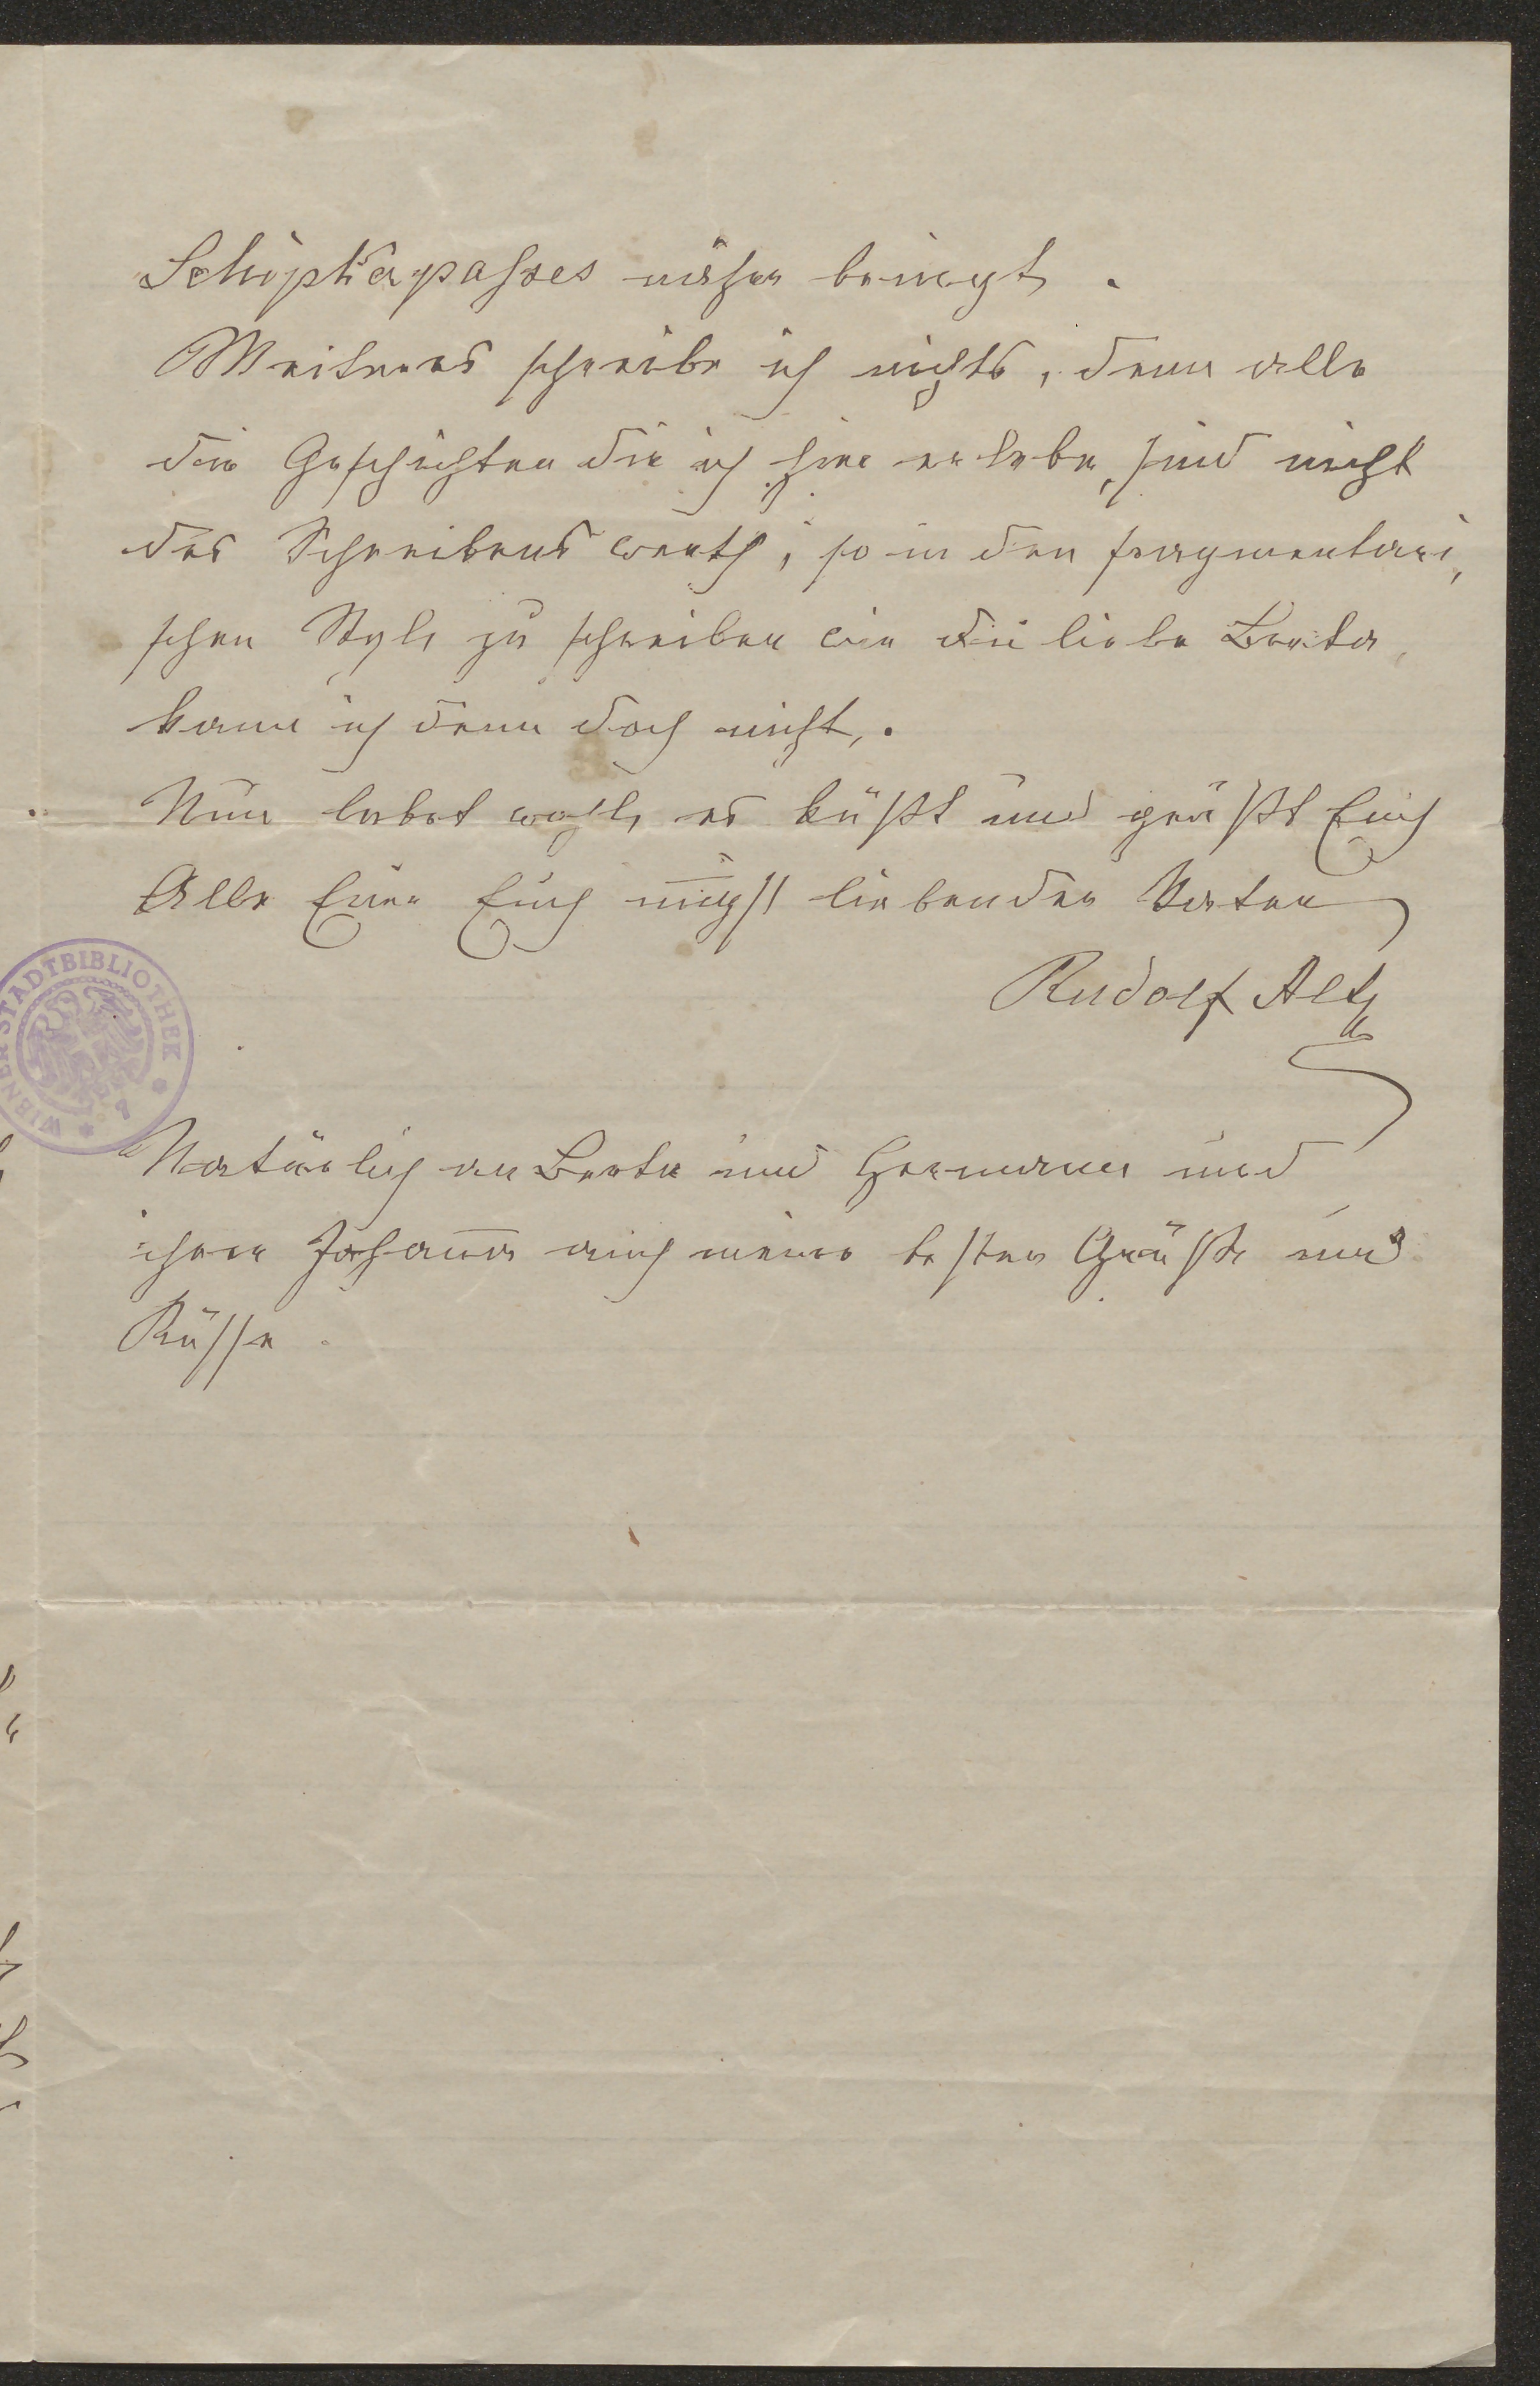 Schipkapasses näher bringt.
Weiteres schreibe ich nichts, denn alle
die Geschichten die ich hier erlebe, sind nicht
des Schreibens werth, so in den fragmentari,
schen Styl, zu schreiben wie die liebe Berta,
kann ich denn doch nicht,.
Nun lebet wohl, es küßt und grüßt Euch
Alle Euer Euch innigst liebender Vater
Rudolf Alt
WIENER STADTBIBLIOTHEK
Natürlich an Berta und Hermann und
ihren Johann auch meine besten Grüße und
Küsse.